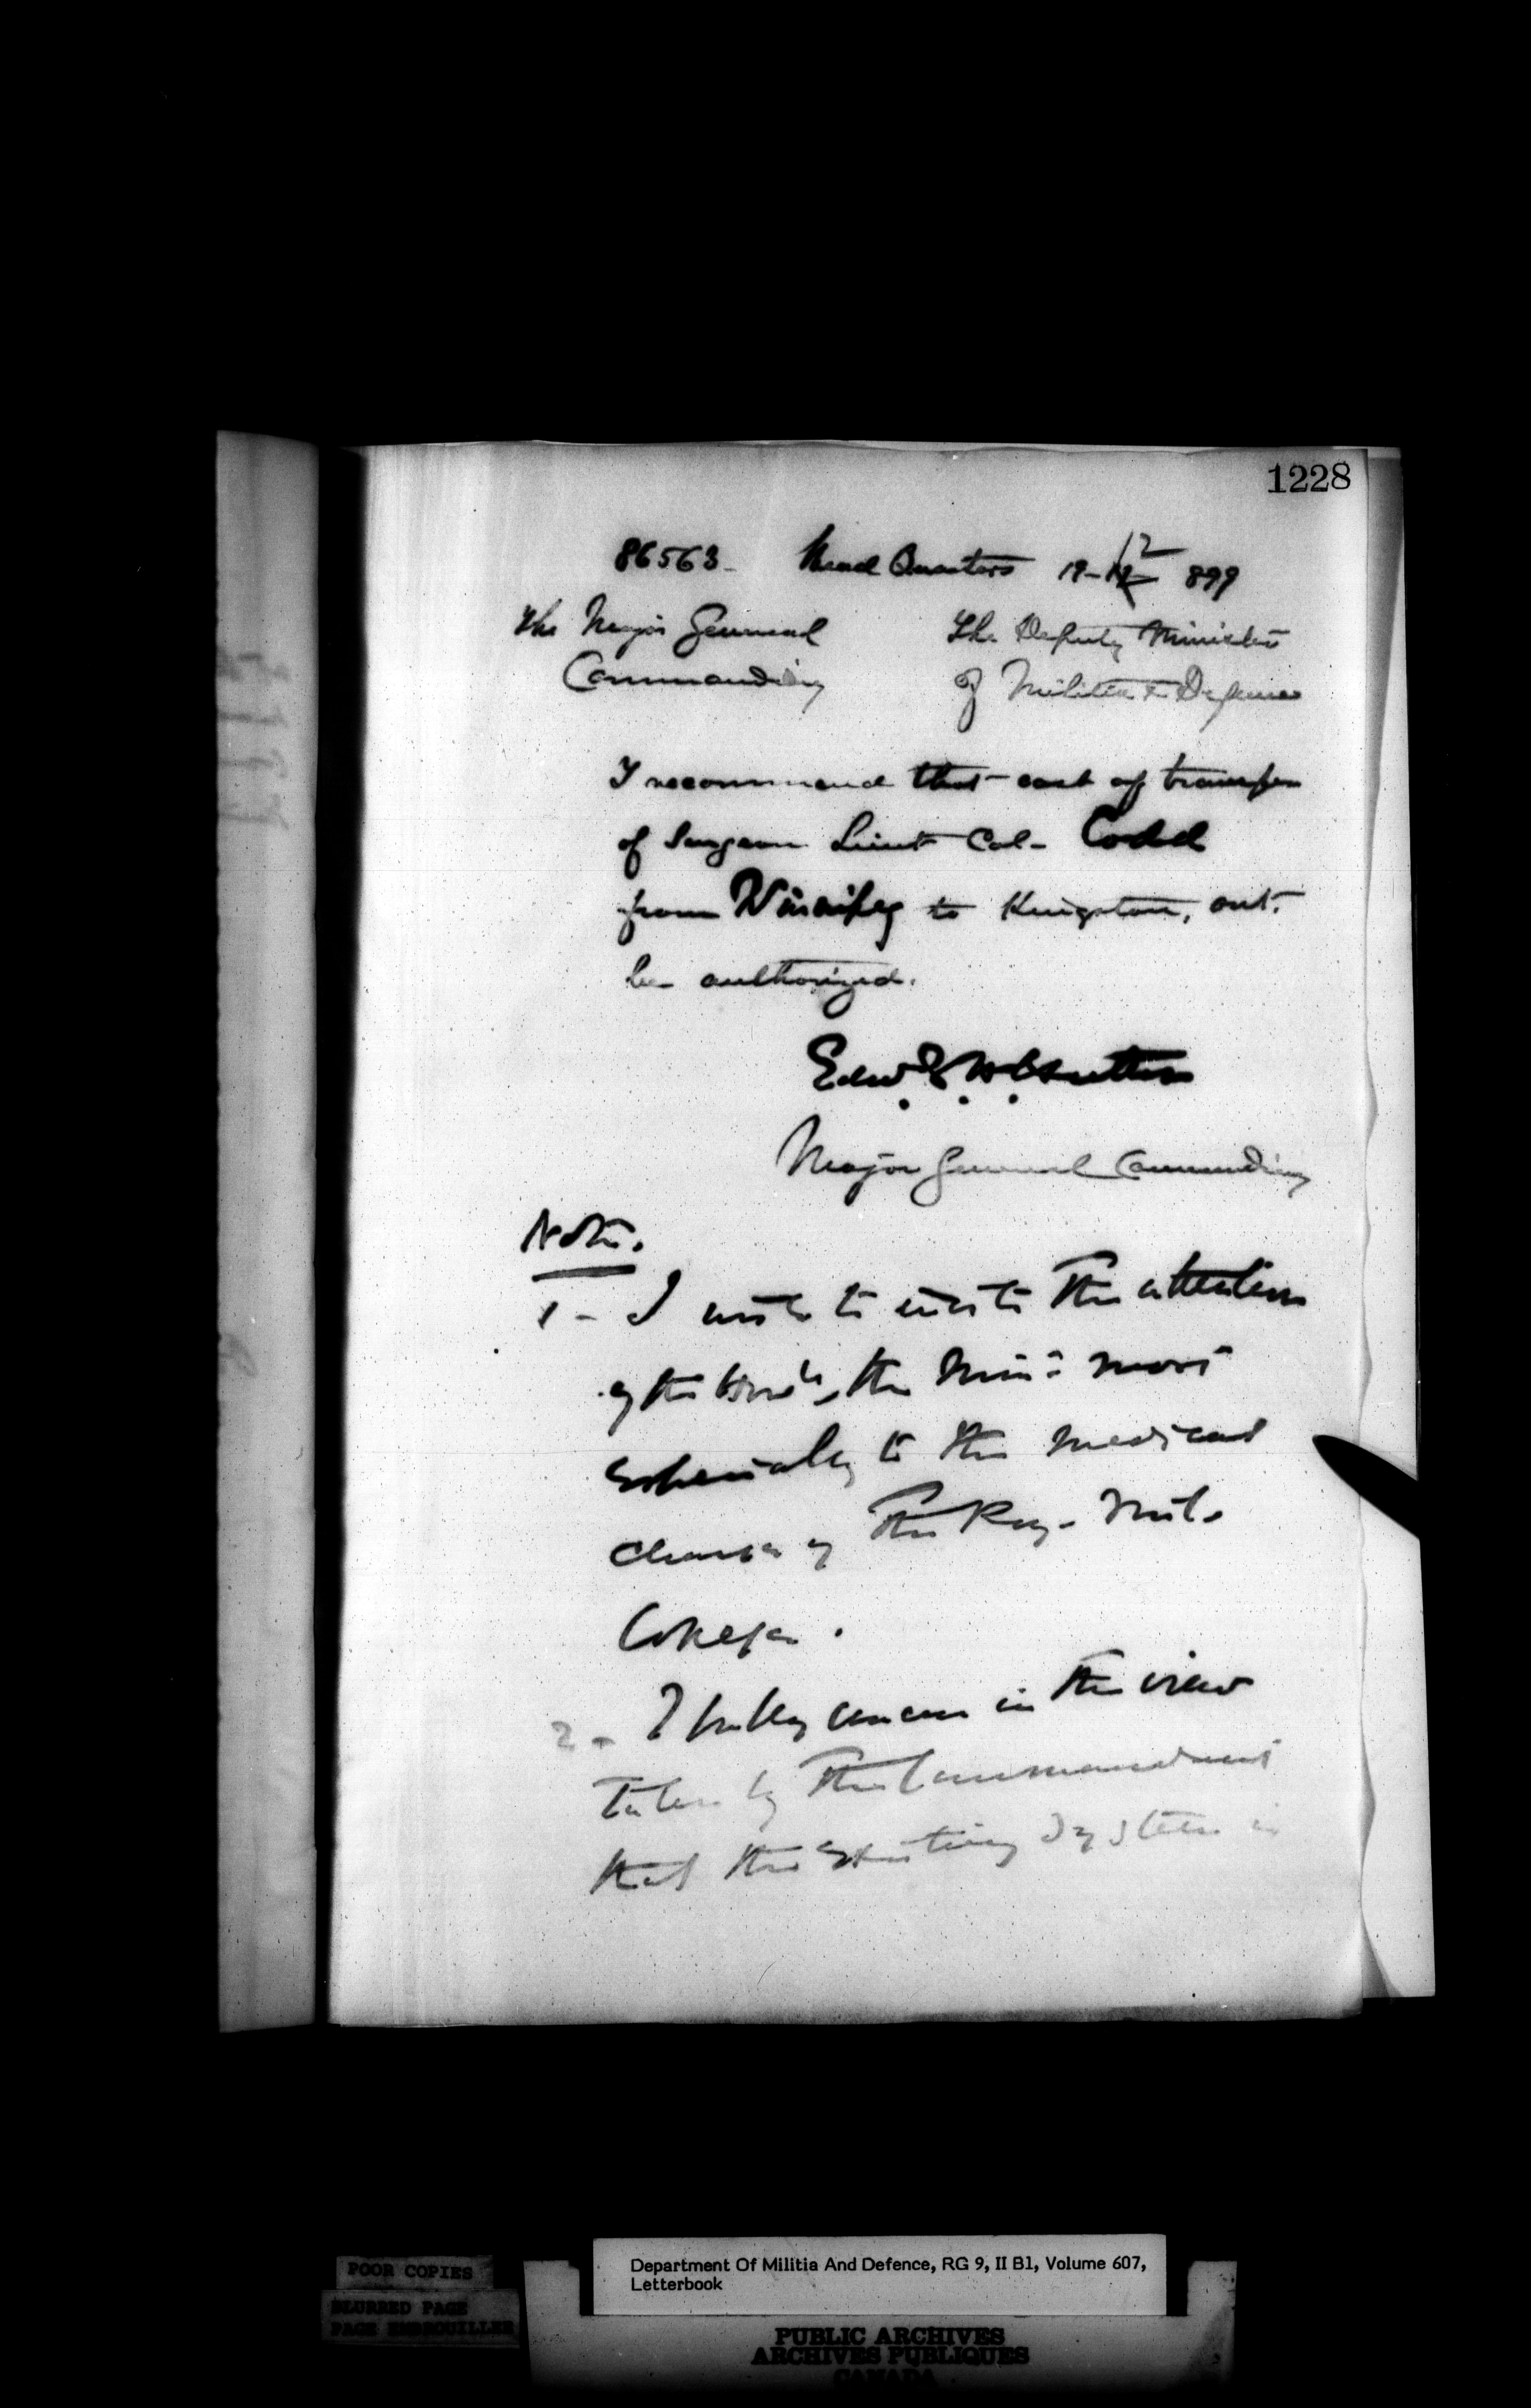 1228
86563 - Head Quarters 19-12 899
The Major General
Commanding
The Deputy Minister
of Militia & Defence
I recommend that cost of transfer
of Surgeon Lieut Col- Codd
from Winnipeg to Kingston, ont.
be authorized.
Edwd T H Hutton
Major General Commanding
Note.
1 - I wish to invite the attention
of the the Minr more
especially to the medical
charge of the Roy- Mil-
College.
2 - I fully concur in the view
taken by the Commandant
that the existing system is
Department Of Militia And Defence, RG 9, II B1, Volume 607,
Letterbook
POOR COPIES
BLURRED PAGE
PAGE EMBROUILLEE
PUBLIC ARCHIVES
ARCHIVES PUBLIQUES
CANADA